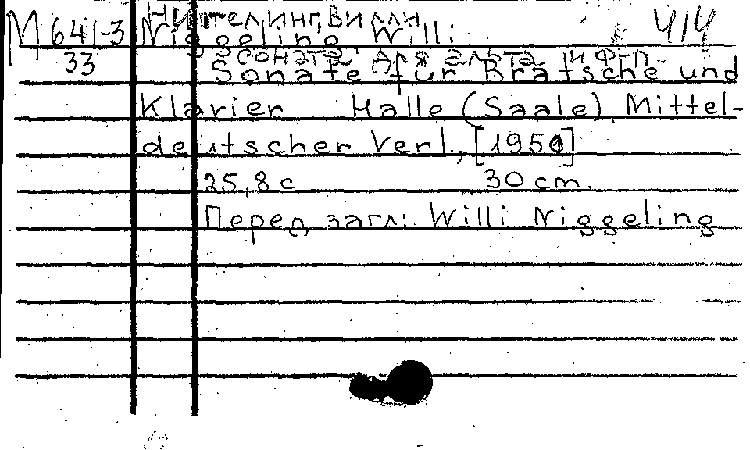 Нигелинг, Вилли
М 641-3 Niggeling, Willi 414
33 Соната для альта и фп.
Sonate für Bratsche und
Klavier Halle (Saale) Mittel-
deutscher Verl., [1951]
25,8 с 30 cm.
Перед загл: Willi Niggeling